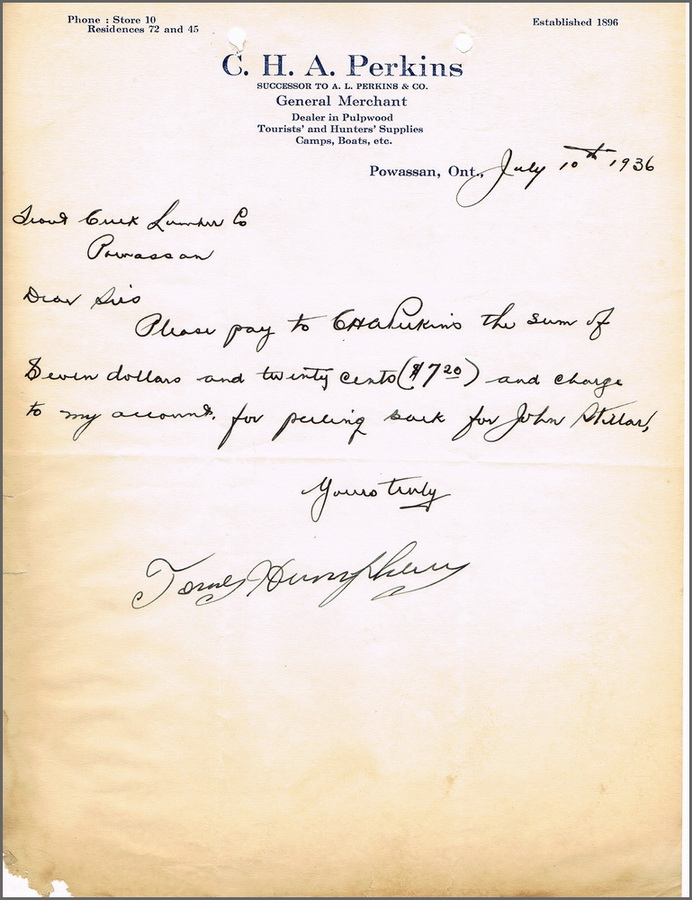 Phone : Store 10
Residences 72 and 45
Established 1896
C. H. A. Perkins
SUCCESSOR TO A. L. PERKINS & CO.
General Merchant
Dealer in Pulpwood
Tourists' and Hunters' Supplies
Camps, Boats, etc.
Powassan, Ont., July 10th 1936
Trout Creek Lumber Co
Powassan
Dear Sirs
Please pay to CHAPerkins the sum of
Seven dollars and twenty cents ($7 20) and charge
to my account. for peeling bark for John Stillar,
Yours truly
Humphery